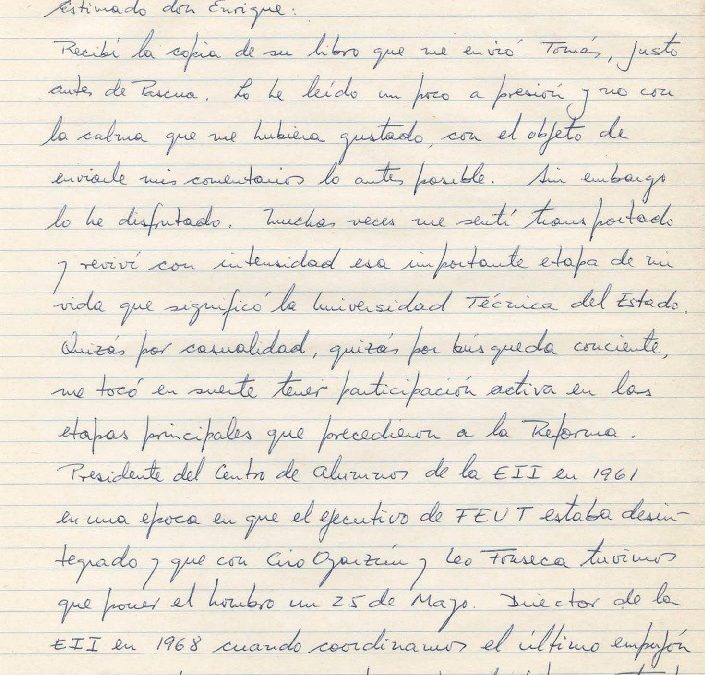 Estimado don Enrique:
Recibí la copia de su libro que me envió Tomás, justo
antes de Pascua. Lo he leído un poco a presión y no con
la calma que me hubiera gustado, con el objeto de
enviarle mis comentarios lo antes posible. Sin embargo
lo he disfrutado. Muchas veces me sentí transportado
y reviví con intensidad esa importante etapa de mi
vida que significó la Universidad Técnica del Estado.
Quizás por casualidad, quizás por búsqueda conciente,
me tocó en suerte tener participación activa en las
etapas principales que precedieron a la Reforma.
Presidente del Centro de Alumnos de la EII en 1961
en una epoca en que el ejecutivo de FEUT estaba desin-
tegrado y que con Ciro Oyarzún y Leo Fonseca tuvimos
que poner el hombro un 25 de Mayo. Director de la
EII en 1968 cuando coordinamos el último empujón